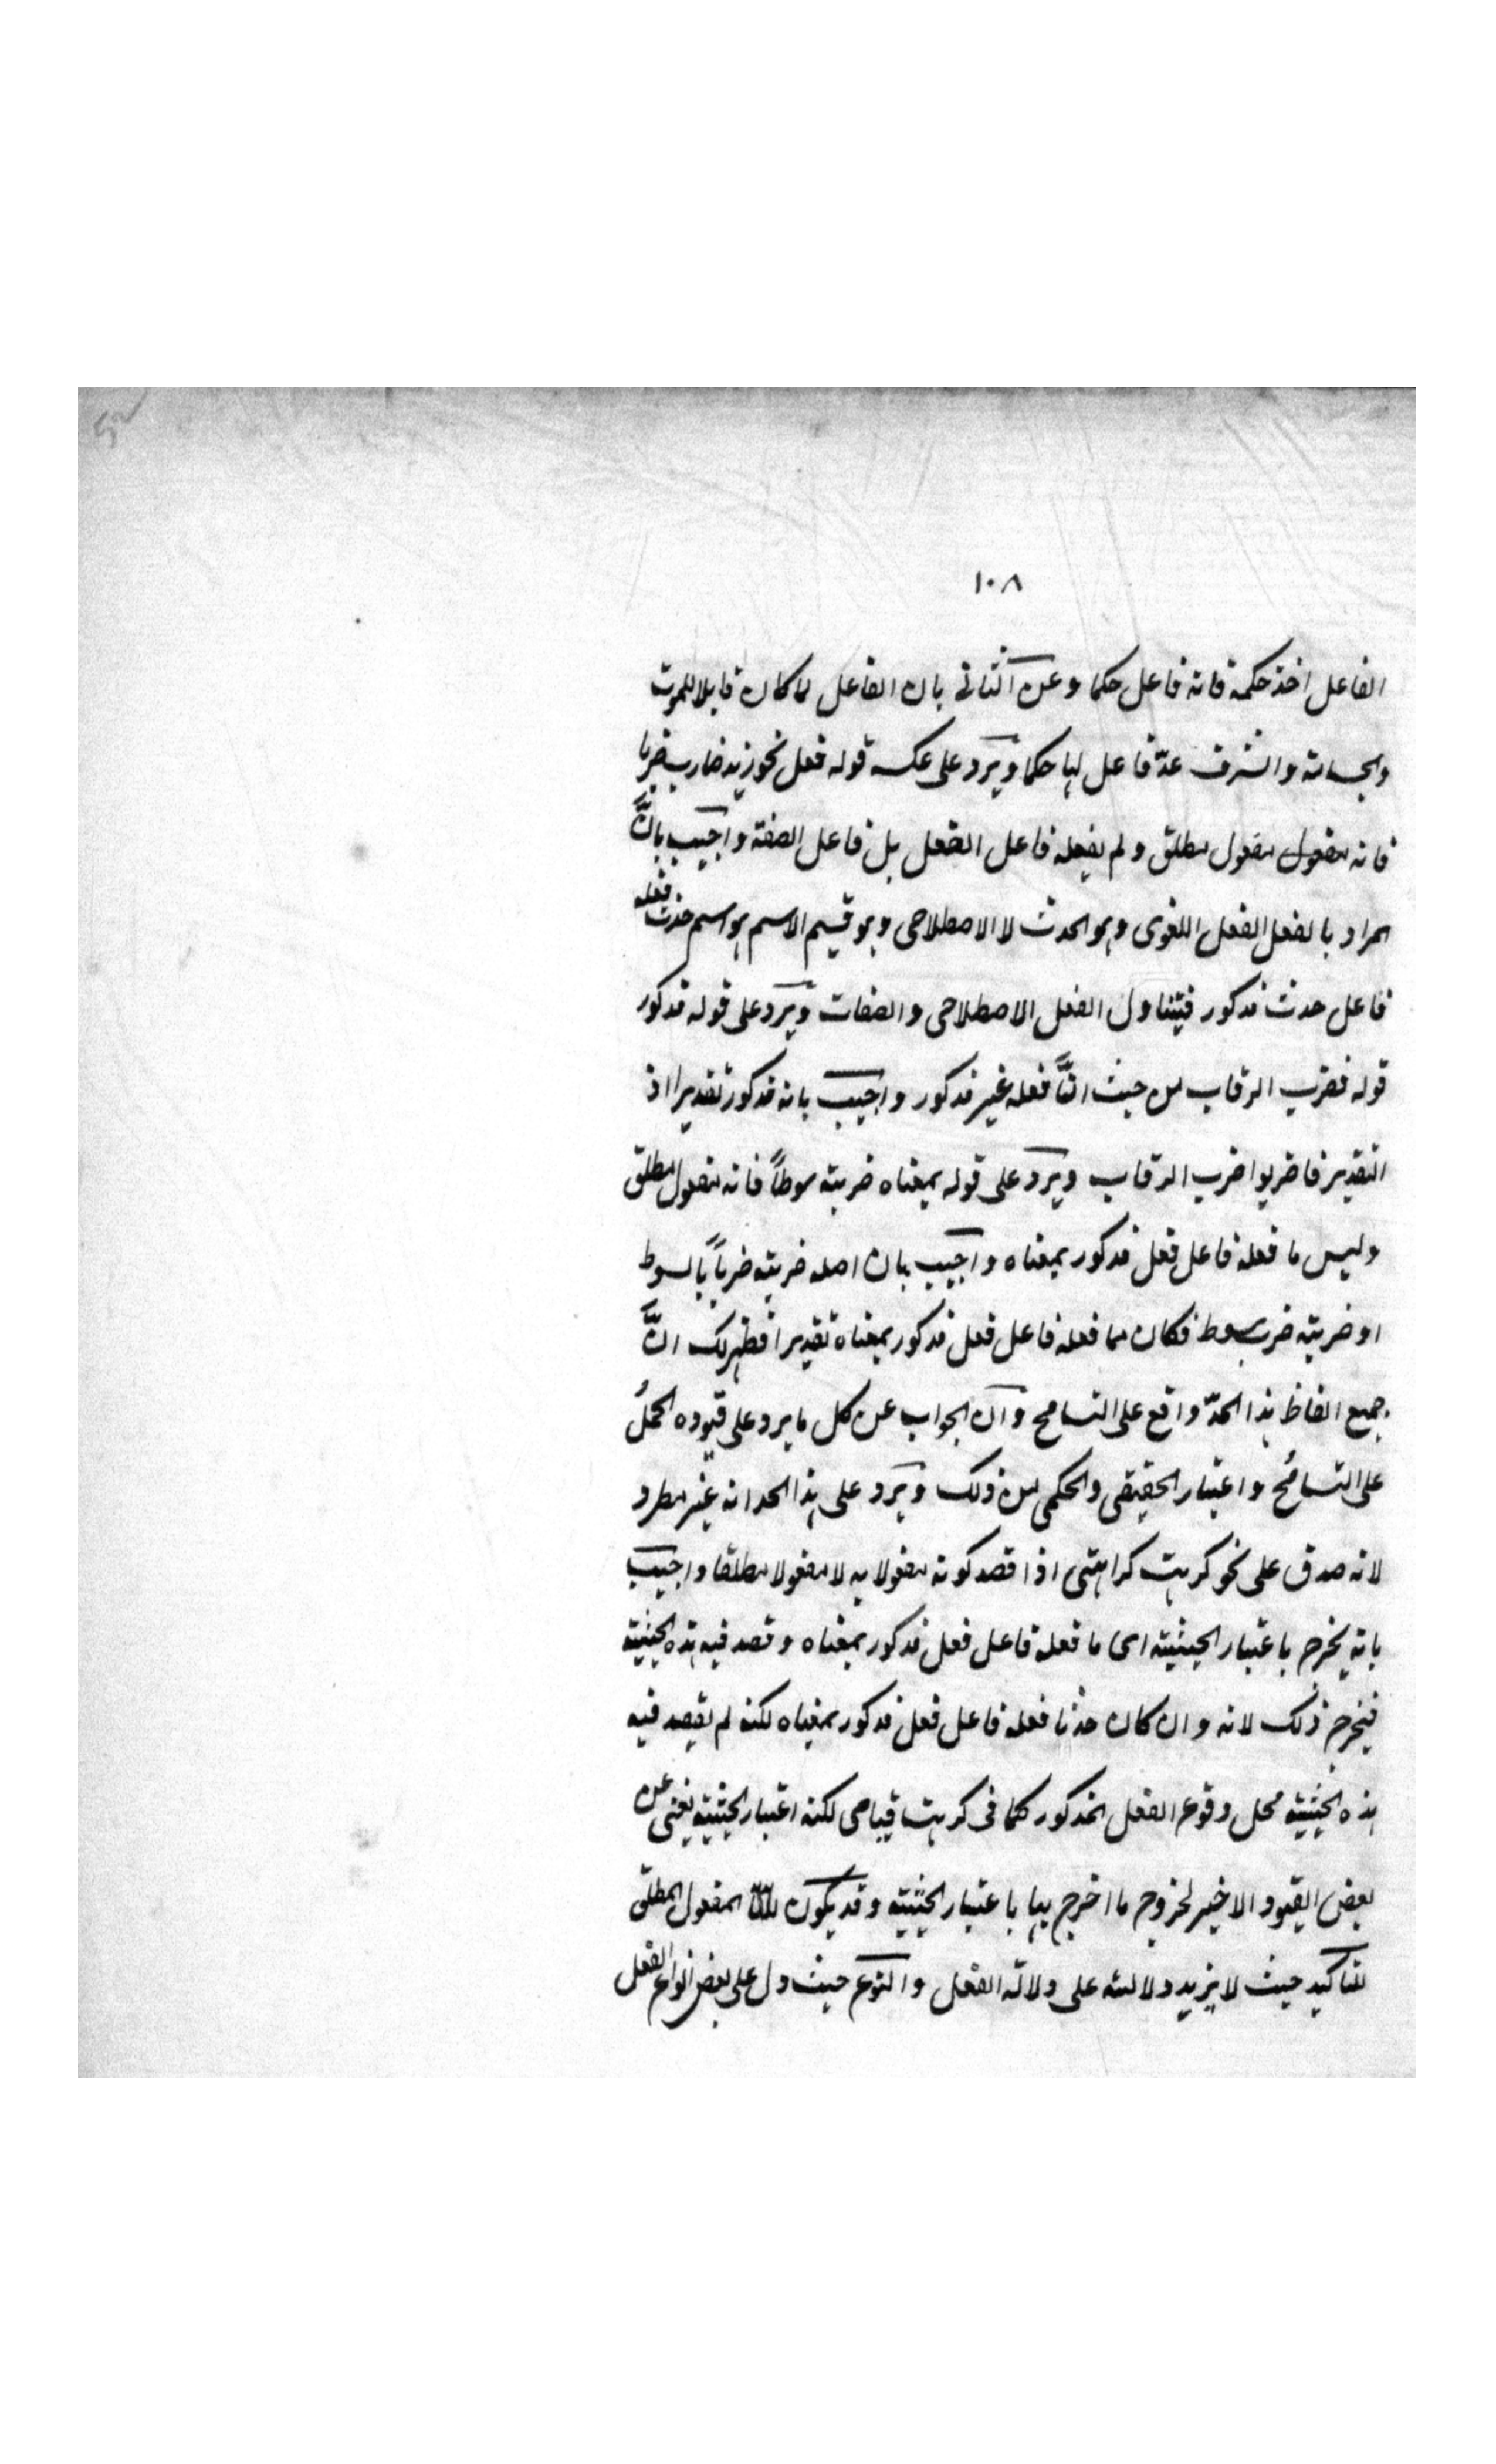 ١٠٨
الفاعل اخذ حكمه فانه فاعل حكما وعن الثانى بان الفاعل لما كان قابلا للموت
والجسامة والشرف عدّ فاعل لها حكما ويرد على عكسه قوله فعل نحو زيد ضارب ضربا
فانه مفعول مفعول مطلق ولم يفعله فاعل الفعل بل فاعل الصفة واجيب بانّ
المراد بالفعل الفعل اللغوى وهو الحدث لا الاصطلاحى وهو قسيم الاسم هو اسم حدث فعله
فاعل حدث مذكور فيتناول الفعل الاصطلاحى والصفات ويرد على قوله مذكور
قوله فضرب الرقاب من حيث انّ فعله غير مذكور واجيب بانه مذكور تقديرا اذ
التقدير فاضربوا ضرب الرقاب ويرد على قوله بمعناه ضربته سوطاً فانه مفعول مطلق
وليس ما فعله فاعل فعل مذكور بمعناه واجيب بان اصله ضربته ضرباً بالسوط
او ضربته ضرب سوط فكان مما فعله فاعل فعل مذكور بمعناه تقديرا فظهر لك انّ
جميع الفاظ هذا الحدّ واقع على التسامح وان الجواب عن كل ما يرد على قيوده الحملُ
على التسامُح واعتبار الحقيقى والحكمى من ذلك ويرد على هذا الحد انه غير مطرد
لانه صدق على نحو كرهت كراهتى اذا قصد كونه مفعولا به لا مفعولا مطلقا واجيب
بانه يخرج باعتبار الحيثية اى ما فعله فاعل فعل مذكور بمعناه وقصد فيه هذه الحيثية
فيخرج ذلك لانه وان كان حدثا فعله فاعل فعل مذكور بمعناه لكنه لم يقصد فيه
هذه الحيثية محل وقوع الفعل المذكور كما فى كرهت قيامى لكنه اعتبار الحيثية يغنى عن
بعض القيود الاخير لخروج ما اخرج بها باعتبار الحيثية وقد يكون المفعول المطلق
للتاكيد حيث لا يزيد دلالته على دلالة الفعل والنوع حيث دل على بعض انواع الفعل